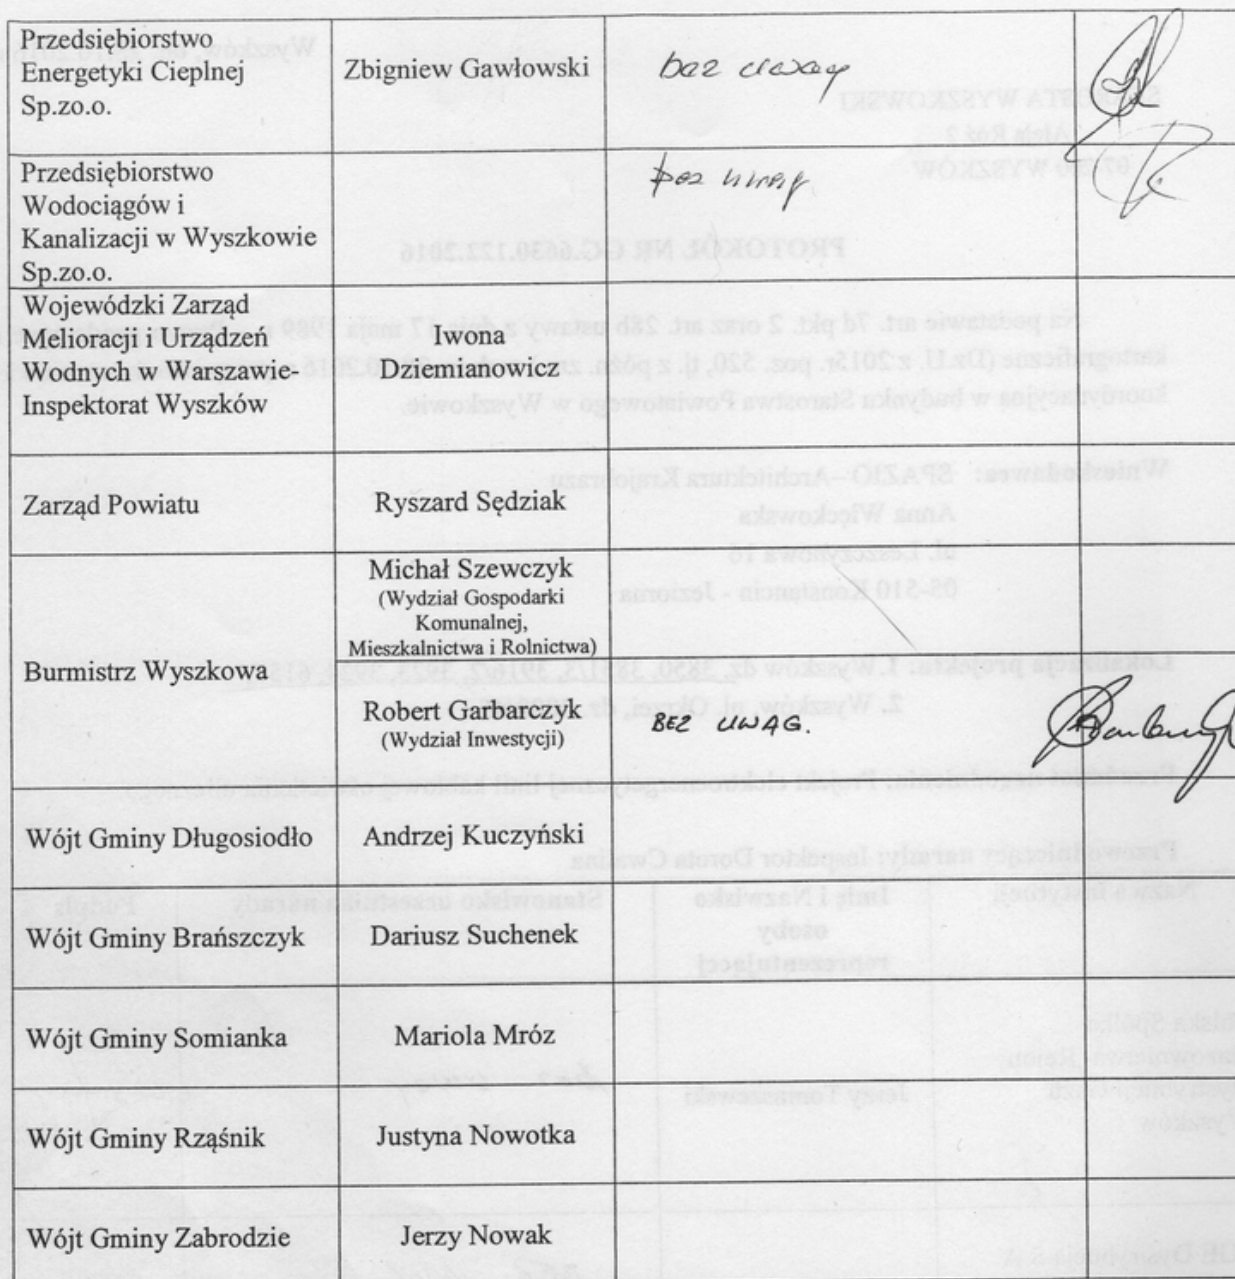 Przedsiębiorstwo
Energetyki Cieplnej
Sp.zo.o.
Zbigniew Gawłowski
bez uwag
Przedsiębiorstwo
Wodociągów i
Kanalizacji w Wyszkowie
Sp.zo.o.
bez uwag.
Wojewódzki Zarząd
Melioracji i Urządzeń
Wodnych w Warszawie-
Inspektorat Wyszków
Iwona
Dziemianowicz
Zarząd Powiatu
Ryszard Sędziak
Burmistrz Wyszkowa
Michał Szewczyk
(Wydział Gospodarki
Komunalnej,
Mieszkalnictwa i Rolnictwa)
Robert Garbarczyk
(Wydział Inwestycji)
BEZ UWAG.
Wójt Gminy Długosiodło
Andrzej Kuczyński
Wójt Gminy Brańszczyk
Dariusz Suchenek
Wójt Gminy Somianka
Mariola Mróz
Wójt Gminy Rząśnik
Justyna Nowotka
Wójt Gminy Zabrodzie
Jerzy Nowak